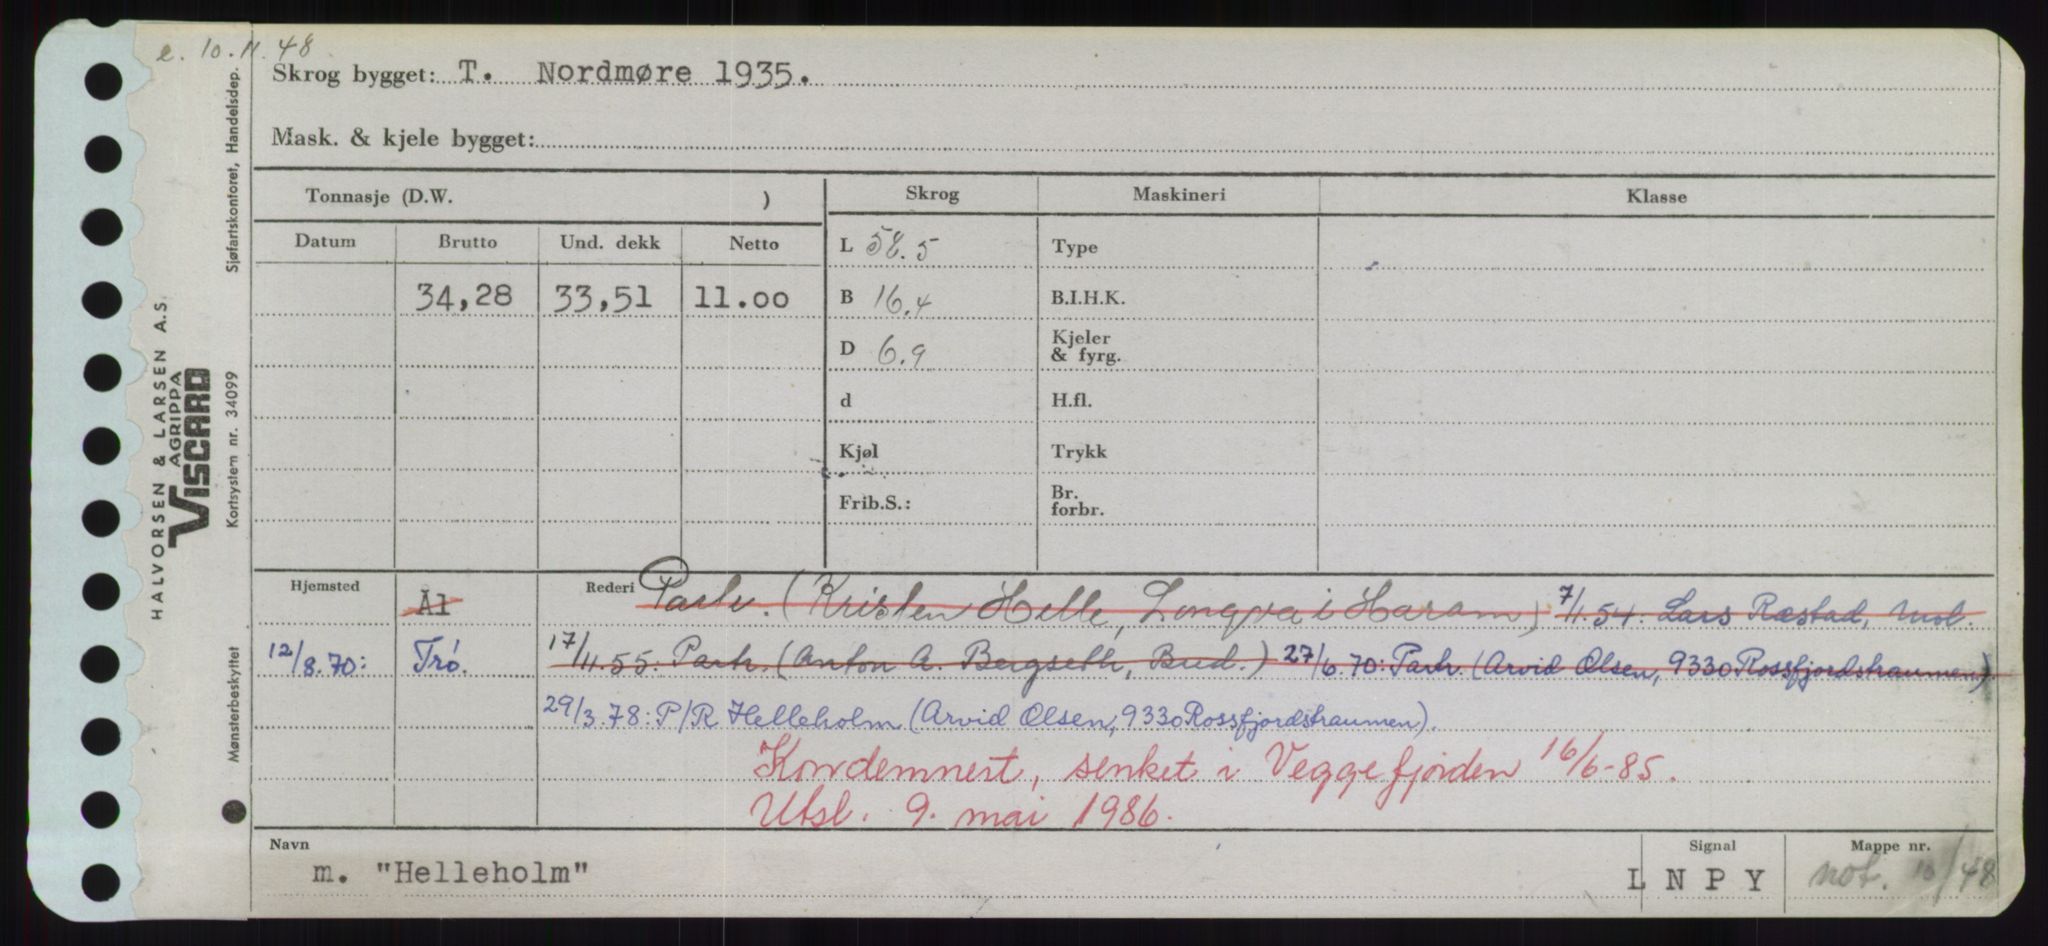 e. 10.11.48
Skrog bygget: T. Nordmøre 1935.
Mask. & kjele bygget:
Tonnasje (D.W. )
Skrog
Maskineri
Klasse
Datum
Brutto
Und. dekk
Netto
34,28
33,51
11.00
L 58.5
B 16.4
D 6.9
d
Kjøl
Frib.S.:
Type
B.I.H.K.
Kjeler
& fyrg.
H.fl.
Trykk
Br.
forbr.
Hjemsted
Ål
12/8.70: Trø.
Rederi Partr. (Kristen Helle, Longva i Haram) 7/11.54: Lars Ræstad, Mol.
17/11.55: Partr. (Anton A. Bergseth, Bud.) 27/6.70: Partr. (Arvid Olsen, 9330 Rossfjordstraumen)
29/3.78: P/R Helleholm (Arvid Olsen, 9330 Rossfjordstraumen).
Kondemnert, senket i Veggefjorden 16/6-85.
Utsl. 9. mai 1986.
Navn
m. "Helleholm"
Signal
L N P Y
Mappe nr.
not. 10/48
Sjøfartskontoret, Handelsdep.
HALVORSEN & LARSEN A.S.
AGRIPPA
VISCARD
Kortsystem nr. 34099
Mønsterbeskyttet